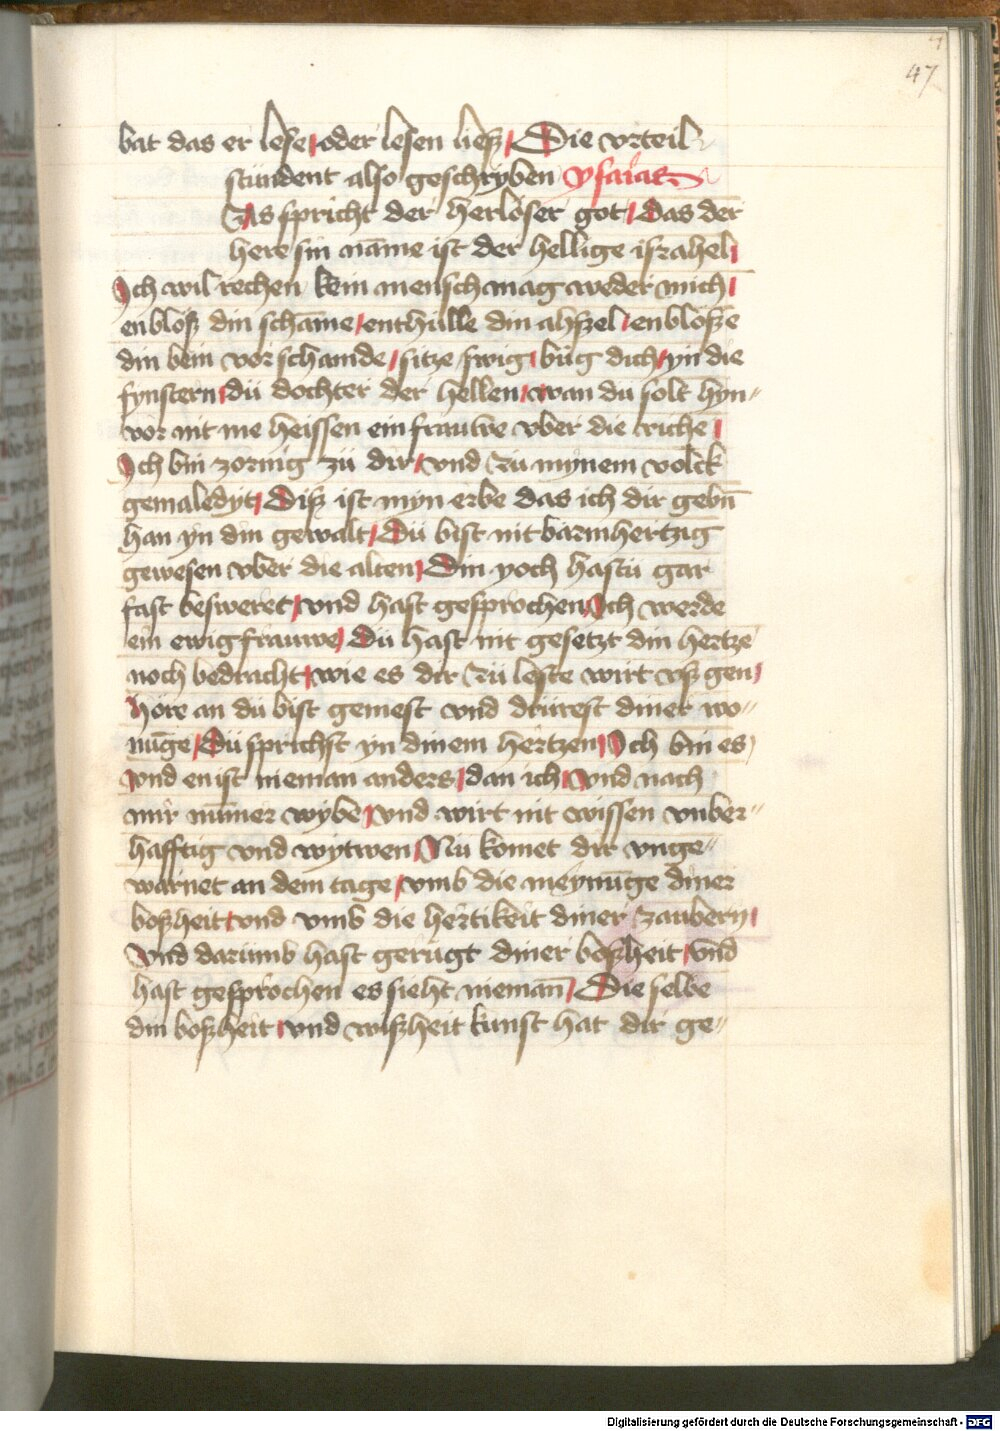 47
bat das er lese oder lesen ließ Die vrteil
stündent also geschryben ysaias
Das spricht der herlöser got Das der
here sin name ist der hellige israhel
Ich wil rechen kein mensch mag weder mich
enbloß din schāme enthülle din ahßel enblöße
din bein vor schamde sitze swig büg dich yn die
fynstern dü dochter der hellen wan du solt hyn„
vor nit me heissen ein frauwe vber die riche
Ich bin zornig zü dir vnd zu mynem volck
gemaledyt Diß ist myn erbe das ich dir gebn̄
han yn din gewalt Dü bist nit barmhertzig
gewesen vber die alten Din yoch hastü gar
fast besweret vnd hast gesprochen Ich werde
ein ewig frauwe Dü hast nit gesetzt din hertze
noch bedracht wie es dir zü leste wirt vß gen
höre an dü bist gemest vnd drürest diner wo„
nūge Dü sprichst yn dinem hertzen Ich bin es
vnd en ist nieman anders dan ich vnd nach
mir nūmer wybe vnd wirt nit wissen vnber„
hafftig vnd wytwen Nü komet dir vnge„
warnet an dem tage vmb die meynūge diner
boßheit vnd vmb die hertikeit diner zaubery
vnd darümb hast gerügt diner boßheit vnd
hast gesprochen es sieht niemān Die selbe
din boßheit vnd wißheit kunst hat dir ge„
Digitalisierung gefördert durch die Deutsche Forschungsgemeinschaft - DFG